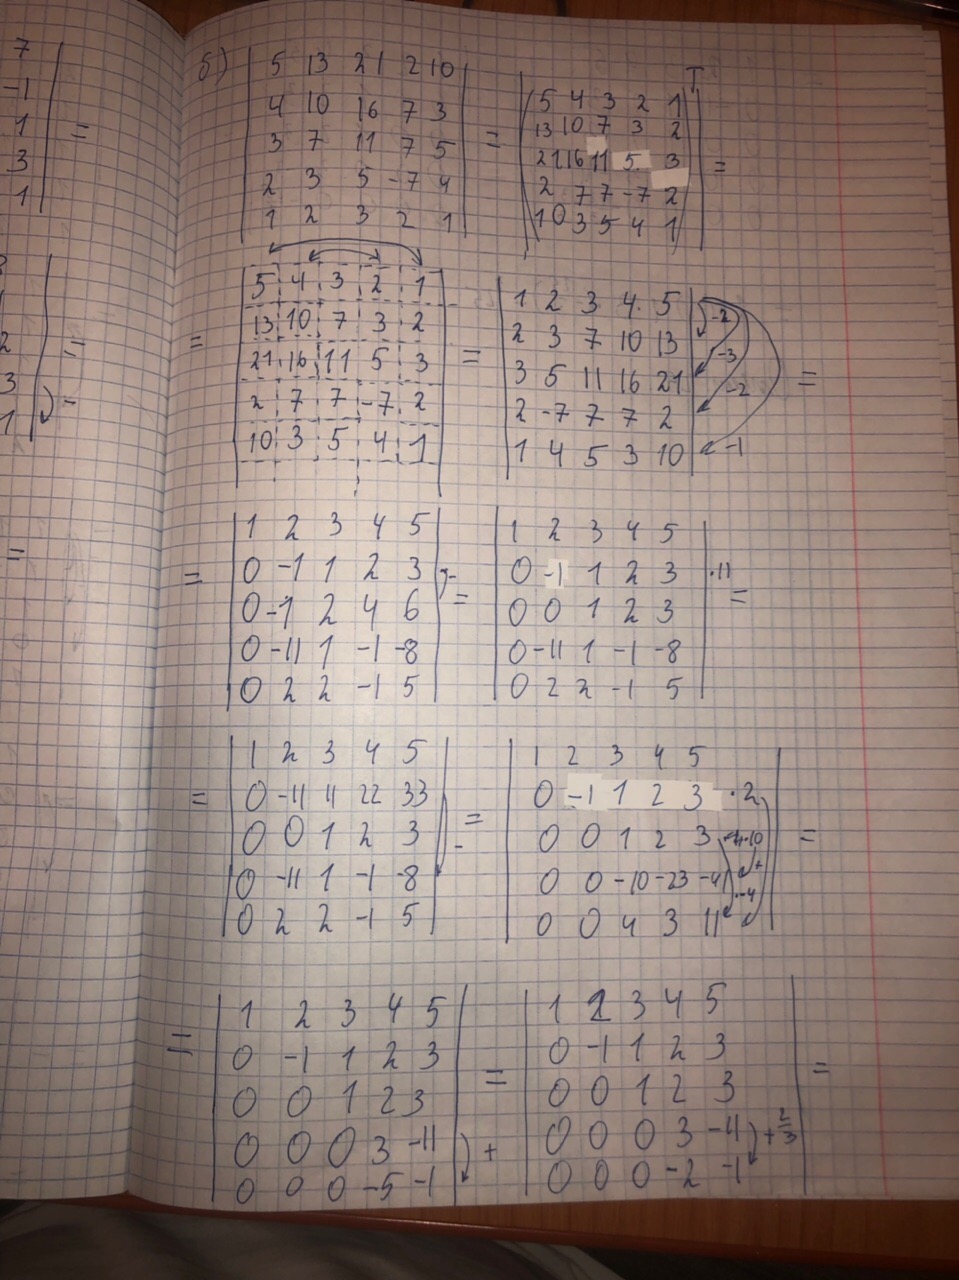 7
-1
1 =
3
1
б) | 5 13 21 2 10 |
| 4 10 16 7 3 |
| 3 7 11 7 5 | =
| 2 3 5 -7 4 |
| 1 2 3 2 1 |
T
| ( 5 4 3 2 1 ) |
| ( 13 10 7 3 2 ) |
| ( 21 16 11 5 3 ) | =
| ( 2 7 7 -7 2 ) |
| ( 10 3 5 4 1 ) |
2
3 =
1 -
=
| 5 4 3 2 1 |
| 13 10 7 3 2 |
= | 21 16 11 5 3 | =
| 2 7 7 -7 2 |
| 10 3 5 4 1 |
| 1 2 3 4 5 | -2
| 2 3 7 10 13 | -3
| 3 5 11 16 21 | -2 =
| 2 -7 7 7 2 |
| 1 4 5 3 10 | -1
| 1 2 3 4 5 |
= | 0 -1 1 2 3 | -
| 0 -1 2 4 6 | =
| 0 -11 1 -1 -8 |
| 0 2 2 -1 5 |
| 1 2 3 4 5 |
| 0 -1 1 2 3 | ·11
| 0 0 1 2 3 | =
| 0 -11 1 -1 -8 |
| 0 2 2 -1 5 |
| 1 2 3 4 5 |
= | 0 -11 11 22 33 |
| 0 0 1 2 3 | - =
| 0 -11 1 -1 -8 |
| 0 2 2 -1 5 |
| 1 2 3 4 5 |
| 0 -1 1 2 3 ·2 |
| 0 0 1 2 3 ·10 | =
| 0 0 -10 -23 -41 + ·-4 |
| 0 0 4 3 11 |
| 1 2 3 4 5 |
= | 0 -1 1 2 3 |
| 0 0 1 2 3 | =
| 0 0 0 3 -11 | +
| 0 0 0 -5 -1 |
| 1 2 3 4 5 |
| 0 -1 1 2 3 | =
| 0 0 1 2 3 |
| 0 0 0 3 -11 | + 2/3
| 0 0 0 -2 -1 |